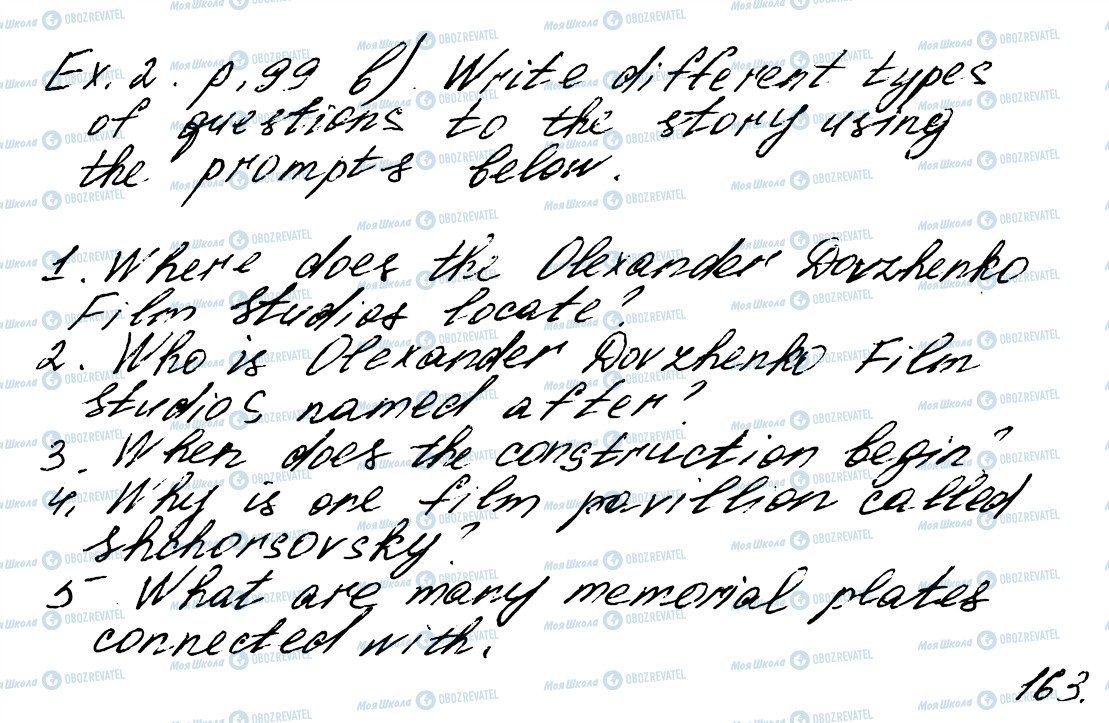 Ex. 2. p. 99 b). Write different types
of questions to the story using
the prompts below.
1. Where does the Olexander Dovzhenko
Film Studios locate?
2. Who is Olexander Dovzhenko Film
Studios named after?
3. When does the construction begin?
4. Why is one film pavillion called
Shchorsovsky?
5 What are many memorial plates
connected with.
163.
Моя Школа OBOZREVATEL